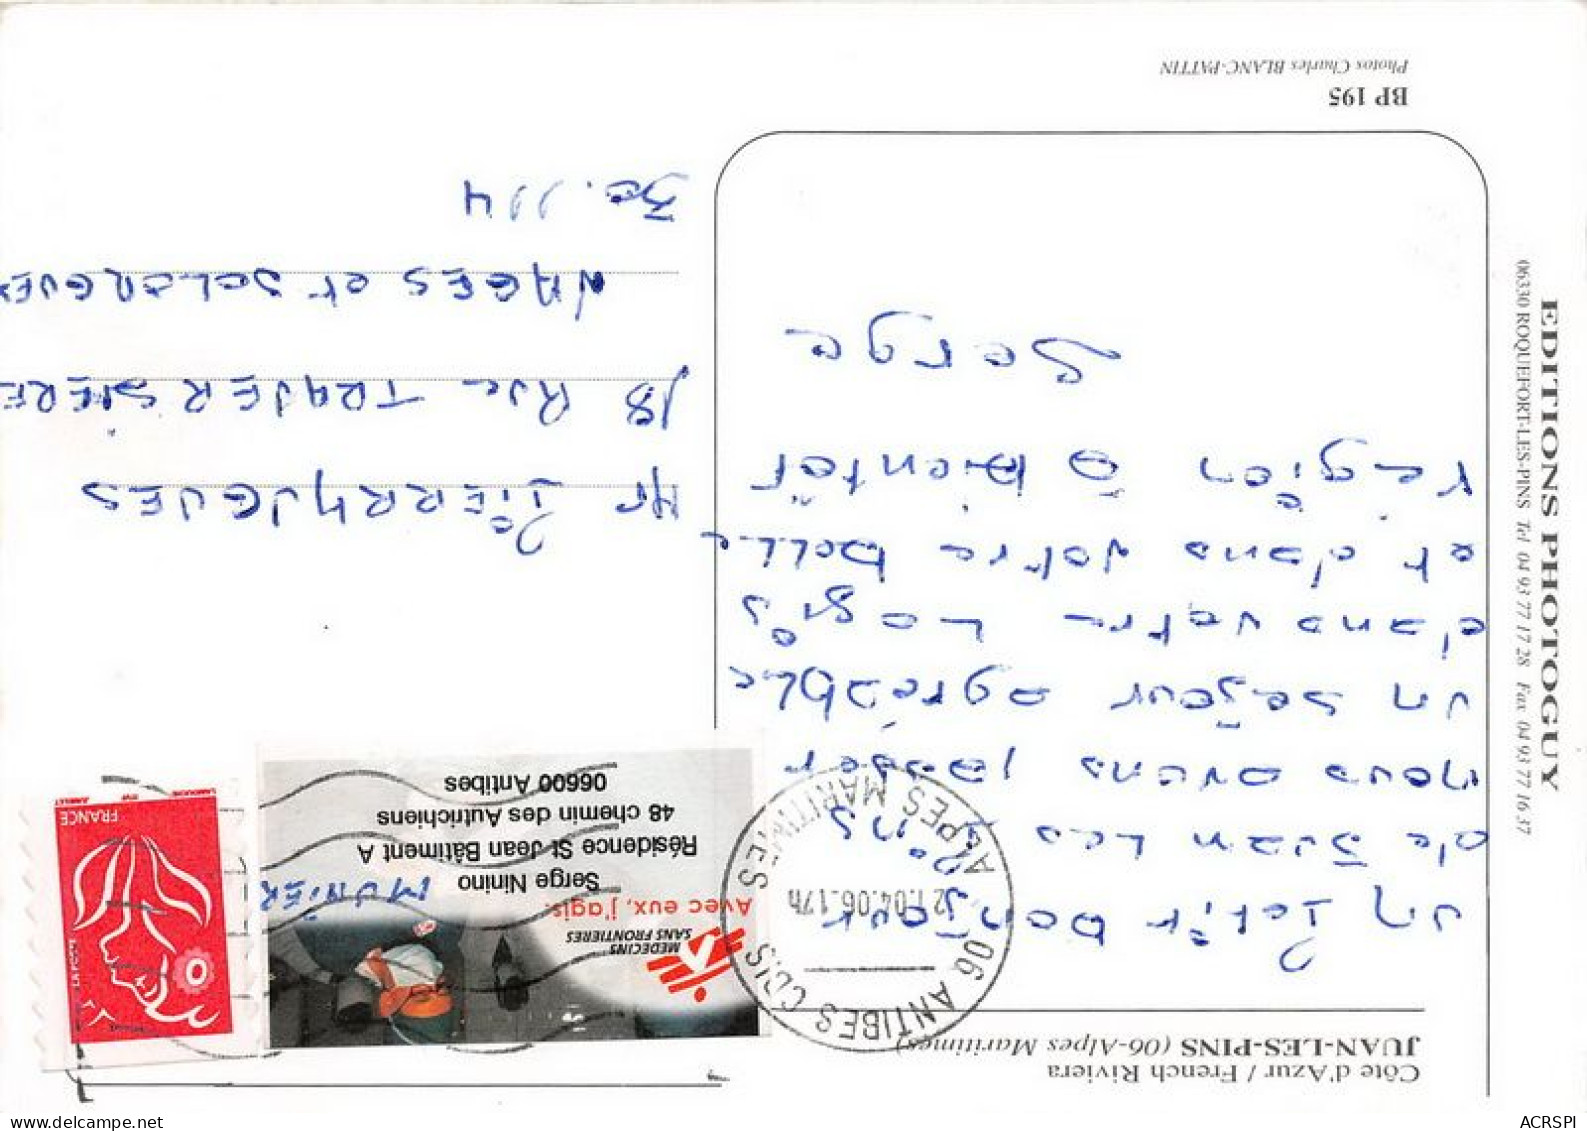 Côte d'Azur / French Riviera
JUAN-LES-PINS (06-Alpes Maritimes)
un Petit Bonjour
de Juan Les Pins
nous avons passer
un sejour agréable
dans votre Logis
et dans votre belle
région à bientôt
Serge
BP 195
Photos Charles BLANC-PATTIN
EDITIONS PHOTOGUY
06330 ROQUEFORT-LES-PINS Tel 04 93 77 17 28 Fax 04 93 77 16 37
06 ANTIBES CDIS
21.04.06.17h
ALPES MARITIMES
MEDECINS
SANS FRONTIERES
Avec eux, j'agis.
MUNIER
Serge Ninino
Résidence St Jean Bâtiment A
48 chemin des Autrichiens
06600 Antibes
LA POSTE
FRANCE
Mr PIERRAJGUES
18 Rue TRAVERSIERE
NAGES et SOLORGUES
30.114
ACRSPI